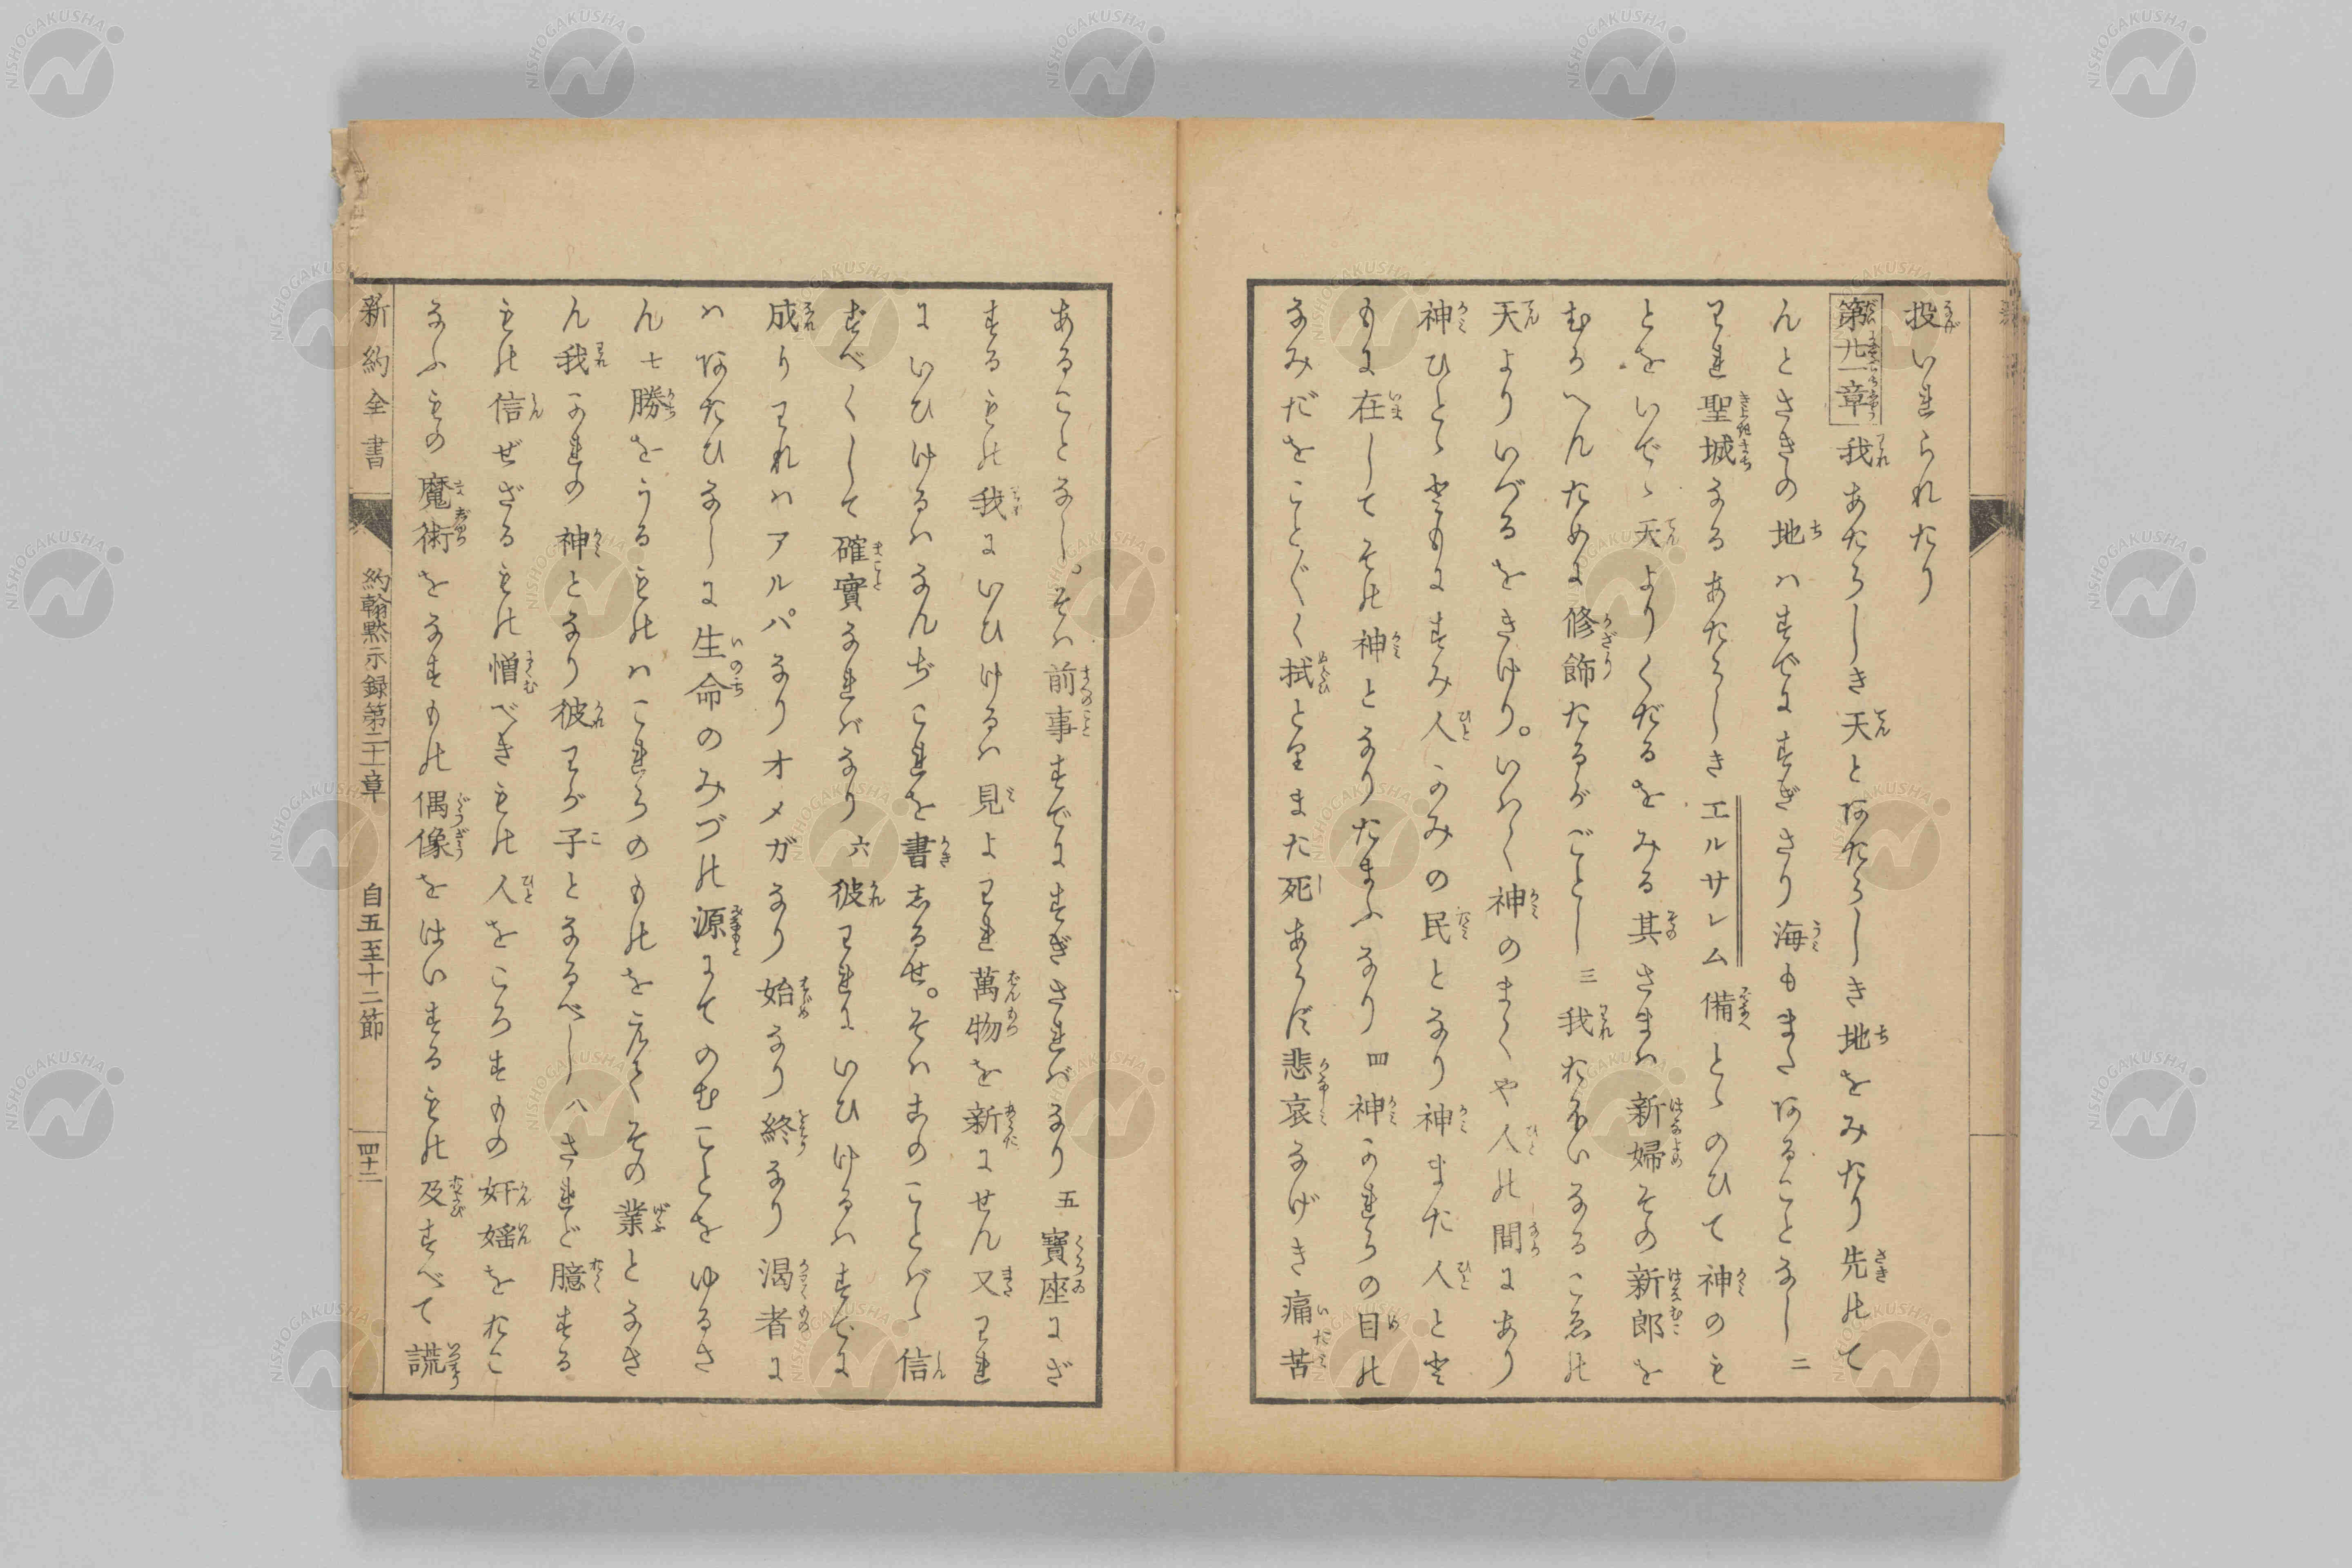 投いれられたり
第廿一章 我あたらしき天とあたらしき地をみたり先のて
んとさきの地ハすでにすぎさり海もまたあることなし 二
われ聖城なるあたらしきエルサレム備とゝのひて神のも
とをいでゝ天よりくだるをみる其さまハ新婦その新郎を
むかへんために修飾たるがごとし 三 我おほいなるこゑの
天よりいづるをきけり。いはく神のまくや人の間にあり
神ひとゝともにすみ人かみの民となり神また人とと
もに在してその神となりたまふなり 四 神かれらの目の
なみだをことごとく拭とりまた死あらず悲哀なげき痛苦
あることなし。そハ前事すでにすぎさればなり 五 寶座にざ
するもの我にいひけるハ見よわれ萬物を新にせん又われ
にいひけるハなんぢこれを書しるせ。そハこのことばゝ信
ずべくして確實なればなり 六 彼われにいひけるハすでに
成りわれハアルパなりオメガなり始なり終なり渇者に
ハあたひなしに生命のみづの源にてのむことをゆるさ
ん 七 勝をうるものハこれらのものをえてその業となさ
ん我かれの神となり彼わが子となるべし 八 されど臆する
もの信ぜざるもの憎べきもの人をころすもの奸婬をおこ
なふもの魔術をなすもの偶像をはいするもの及すべて謊
新約全書 約翰黙示録第二十一章 自五至十二節 四十二
NISHOGAKUSHA